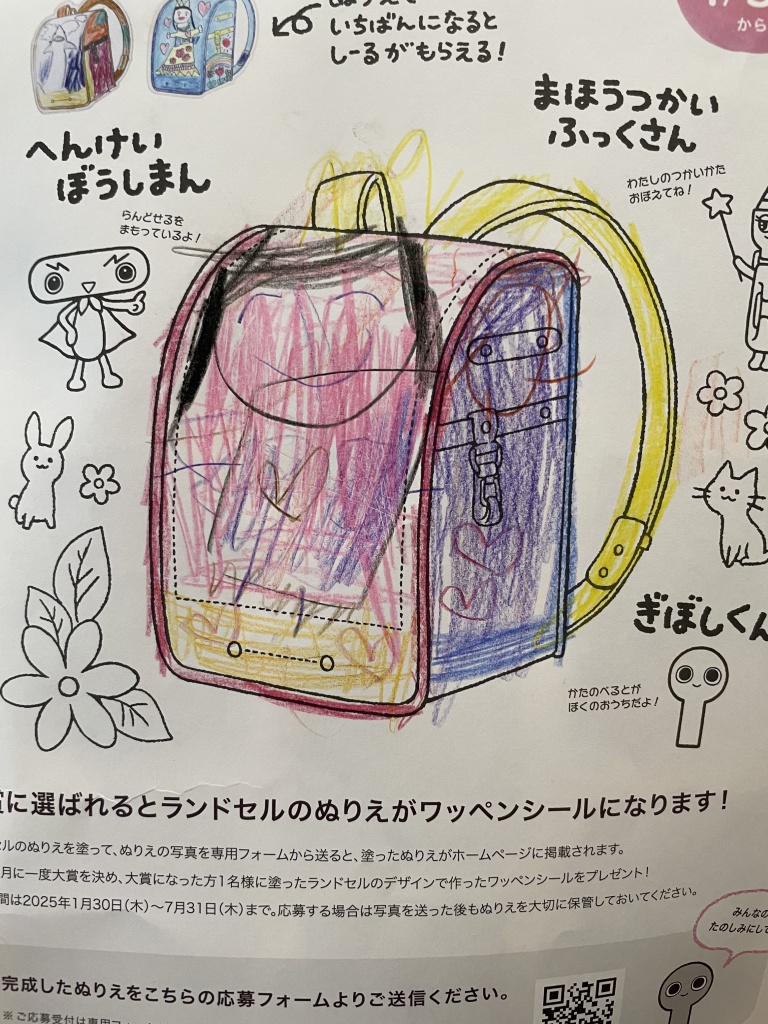 いちばんになると
しーるがもらえる!
から
まほうつかい
ふっくさん
わたしのつかいかた
おぼえてね!
へんけい
ぼうしまん
らんどせるを
まもっているよ!
ぎぼしくん
かたのべるとが
ぼくのおうちだよ!
賞に選ばれるとランドセルのぬりえがワッペンシールになります!
セルのぬりえを塗って、ぬりえの写真を専用フォームから送ると、塗ったぬりえがホームページに掲載されます。
月に一度大賞を決め、大賞になった方1名様に塗ったランドセルのデザインで作ったワッペンシールをプレゼント!
間は2025年1月30日(木)〜7月31日(木)まで。応募する場合は写真を送った後もぬりえを大切に保管しておいてください。
みんなの
たのしみにして
完成したぬりえをこちらの応募フォームよりご送信ください。